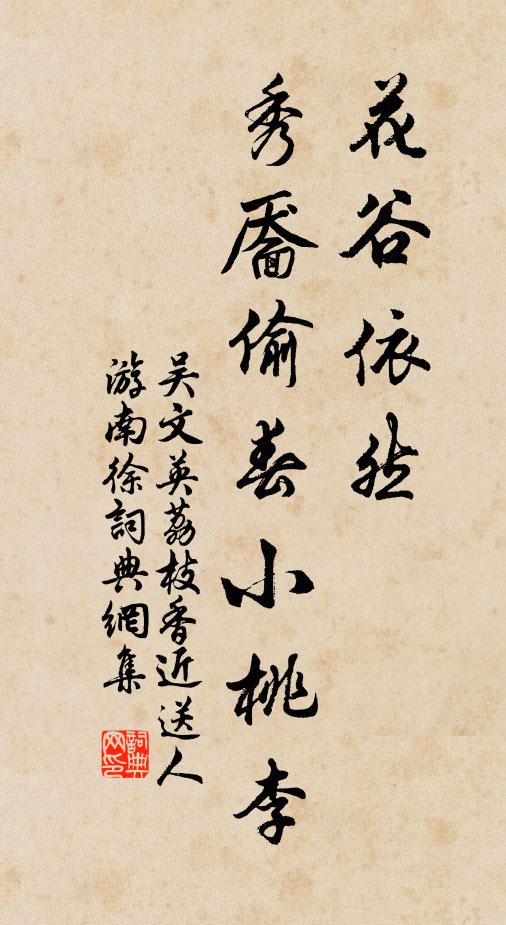 花谷依然
秀靨偷春小桃李
吴文英荔枝香近送人
游南徐詞典網集
詞典網印